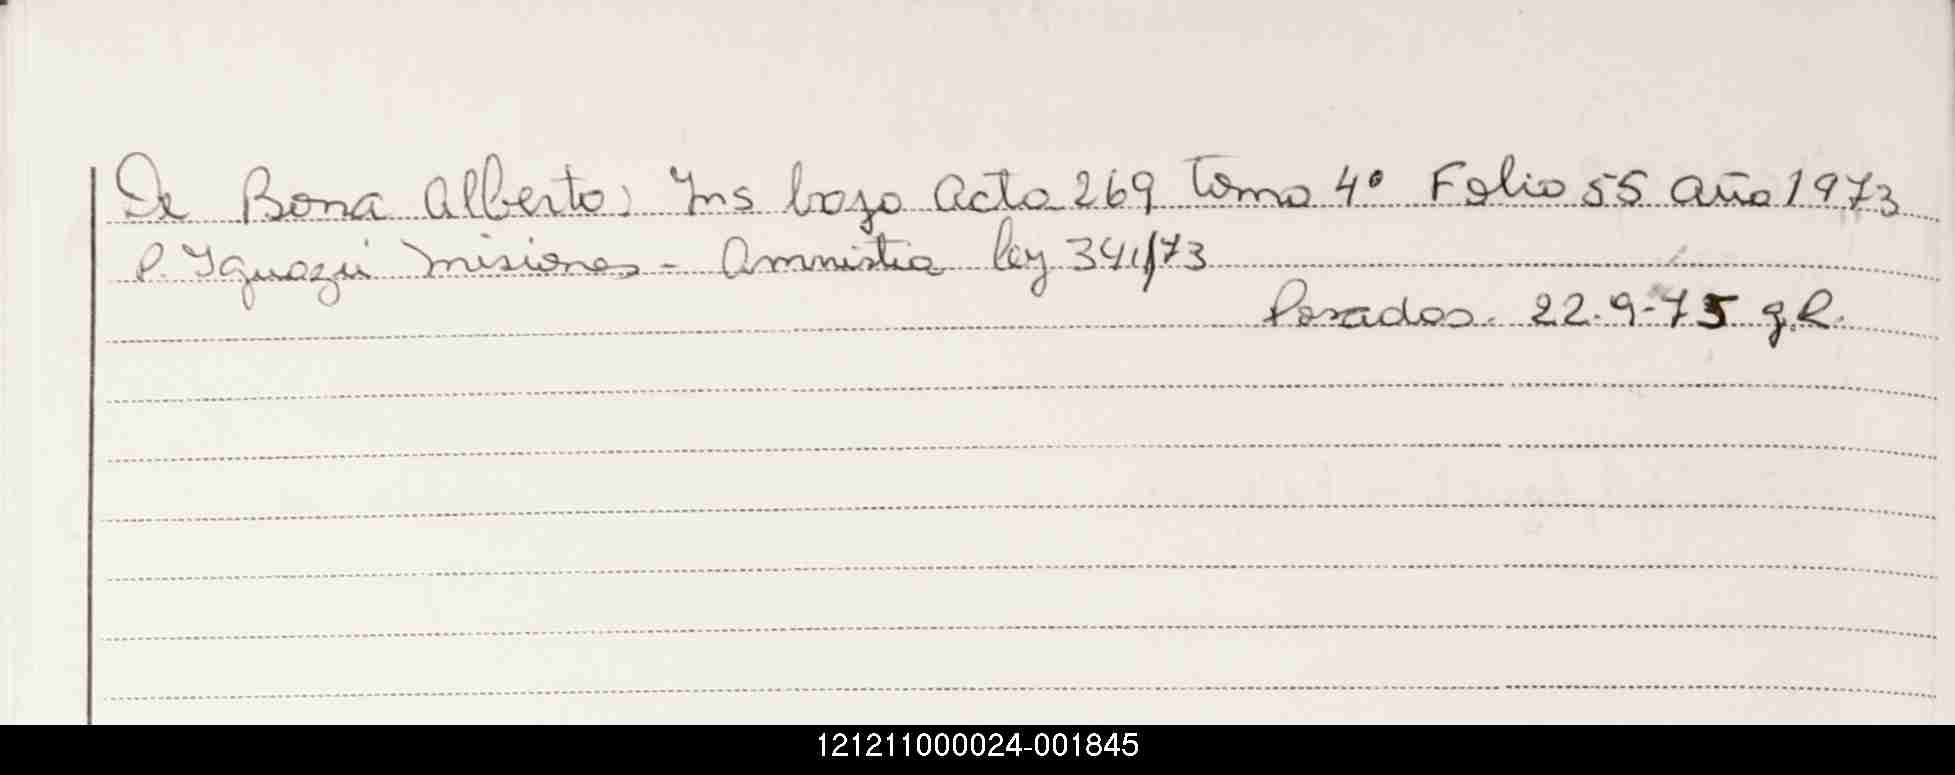 De Bona Alberto: Ins bajo Acta 269 Tomo 4° Folio 55 año 1973
P. Iguazú Misiones - Amnistia ley 341/73
Posadas. 22.9-75 g.R.
121211000024-001845